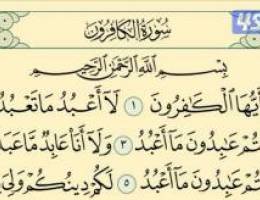 سُورَةُ الكَافِرُونَ
بِسْمِ ٱللَّهِ ٱلرَّحْمَٰنِ ٱلرَّحِيمِ
أَيُّهَا ٱلْكَٰفِرُونَ ١ لَآ أَعْبُدُ مَا تَعْبُدُ
تُمْ عَٰبِدُونَ مَآ أَعْبُدُ ٣ وَلَآ أَنَا۠ عَابِدٌ مَّا عَبَد
تُمْ عَٰبِدُونَ مَآ أَعْبُدُ ٥ لَكُمْ دِينُكُمْ وَلِيَ